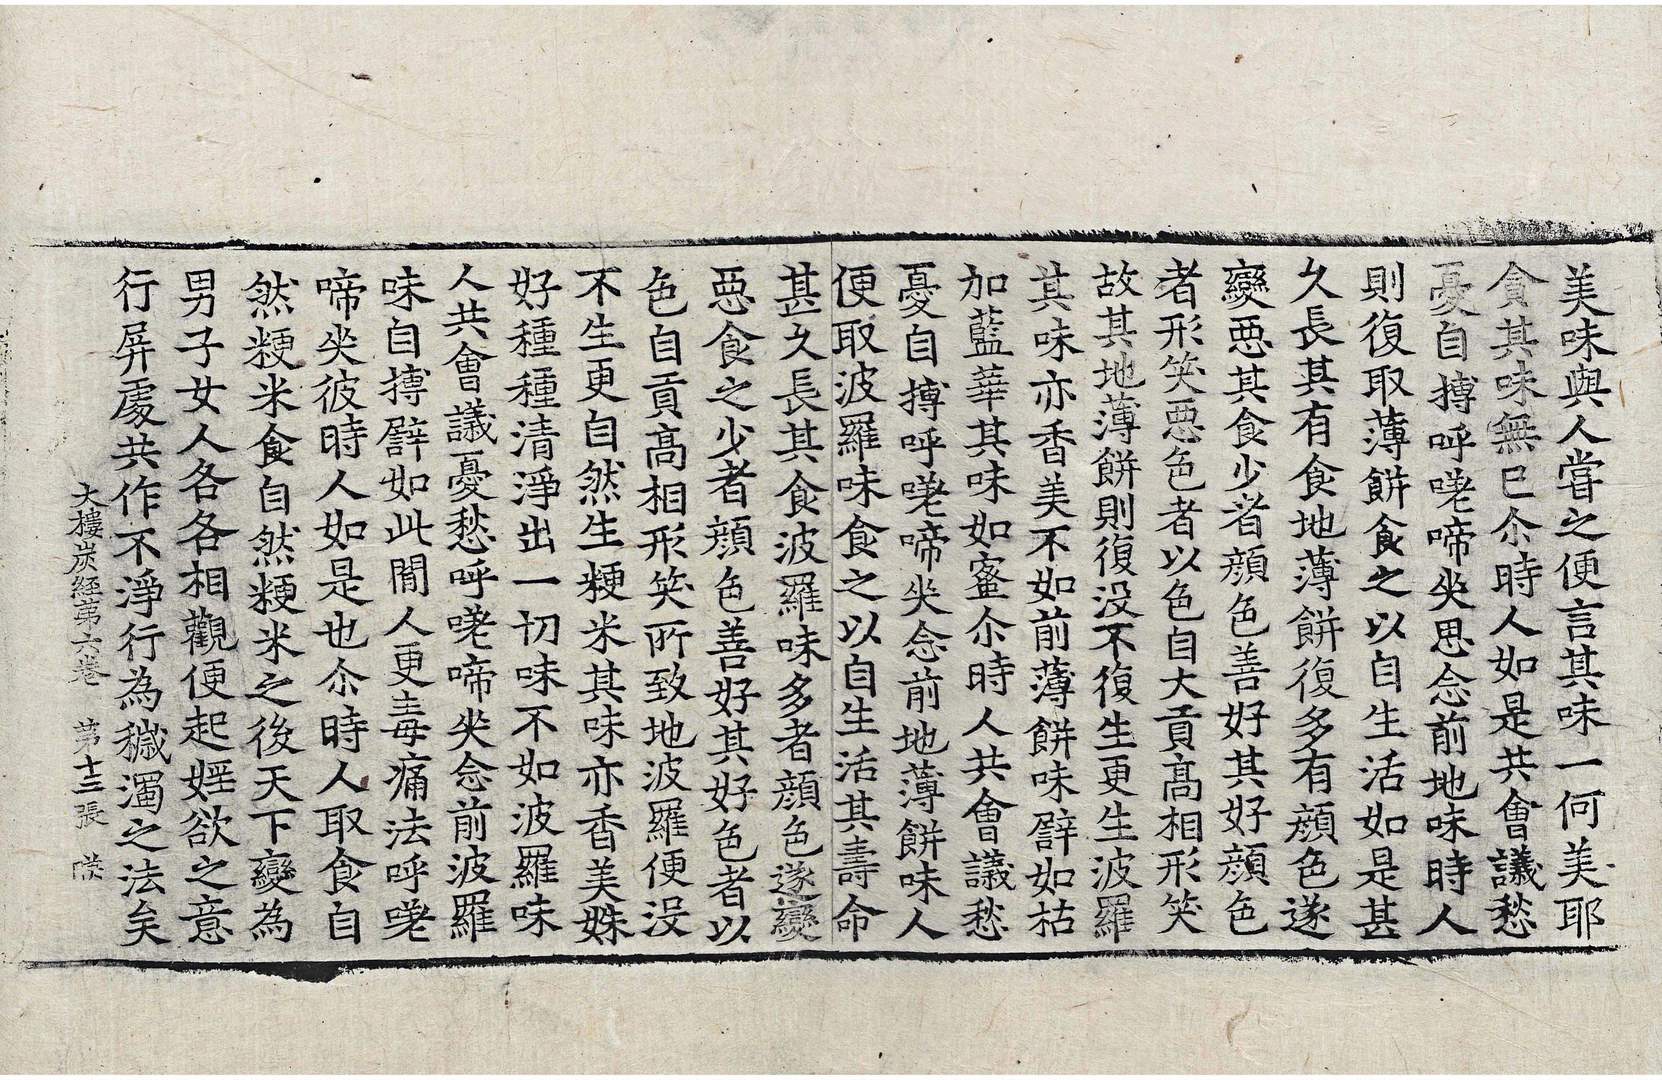 美味與人甞之便言其味一何美耶
貪其味無已尒時人如是共會議愁
憂自搏呼嗟啼坐思念前地味時人
則復取薄餅食之以自生活如是甚
久長其有食地薄餅復多有顔色遂
變惡其食少者顔色善好其好顔色
者形笑惡色者以色自大貢高相形笑
故其地薄餅則復没不復生更生波羅
其味亦香美不如前薄餅味譬如枯
加藍華其味如蜜尒時人共會議愁
憂自搏呼嗟啼坐念前地薄餅味人
便取波羅味食之以自生活其壽命
甚久長其食波羅味多者顔色遂變
惡食之少者顔色善好其好色者以
色自貢高相形笑所致地波羅便没
不生更自然生粳米其味亦香美姝
好種種清淨出一切味不如波羅味
人共會議憂愁呼嗟啼坐念前波羅
味自搏譬如此間人更毒痛法呼嗟
啼坐彼時人如是也尒時人取食自
然粳米食自然粳米之後天下變為
男子女人各各相觀便起婬欲之意
行屏處共作不淨行為穢濁之法矣
大樓炭経第六卷　第十三張